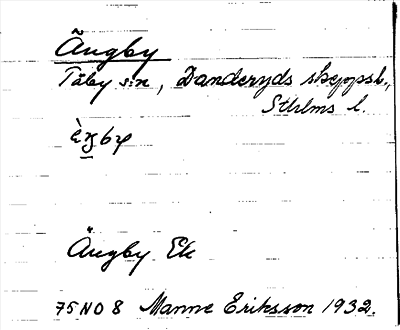 Ängby
Täby sn, Danderyds skeppsl.,
Sthlms l.
Ängby Ek
75 NO 8 Manne Eriksson 1932.